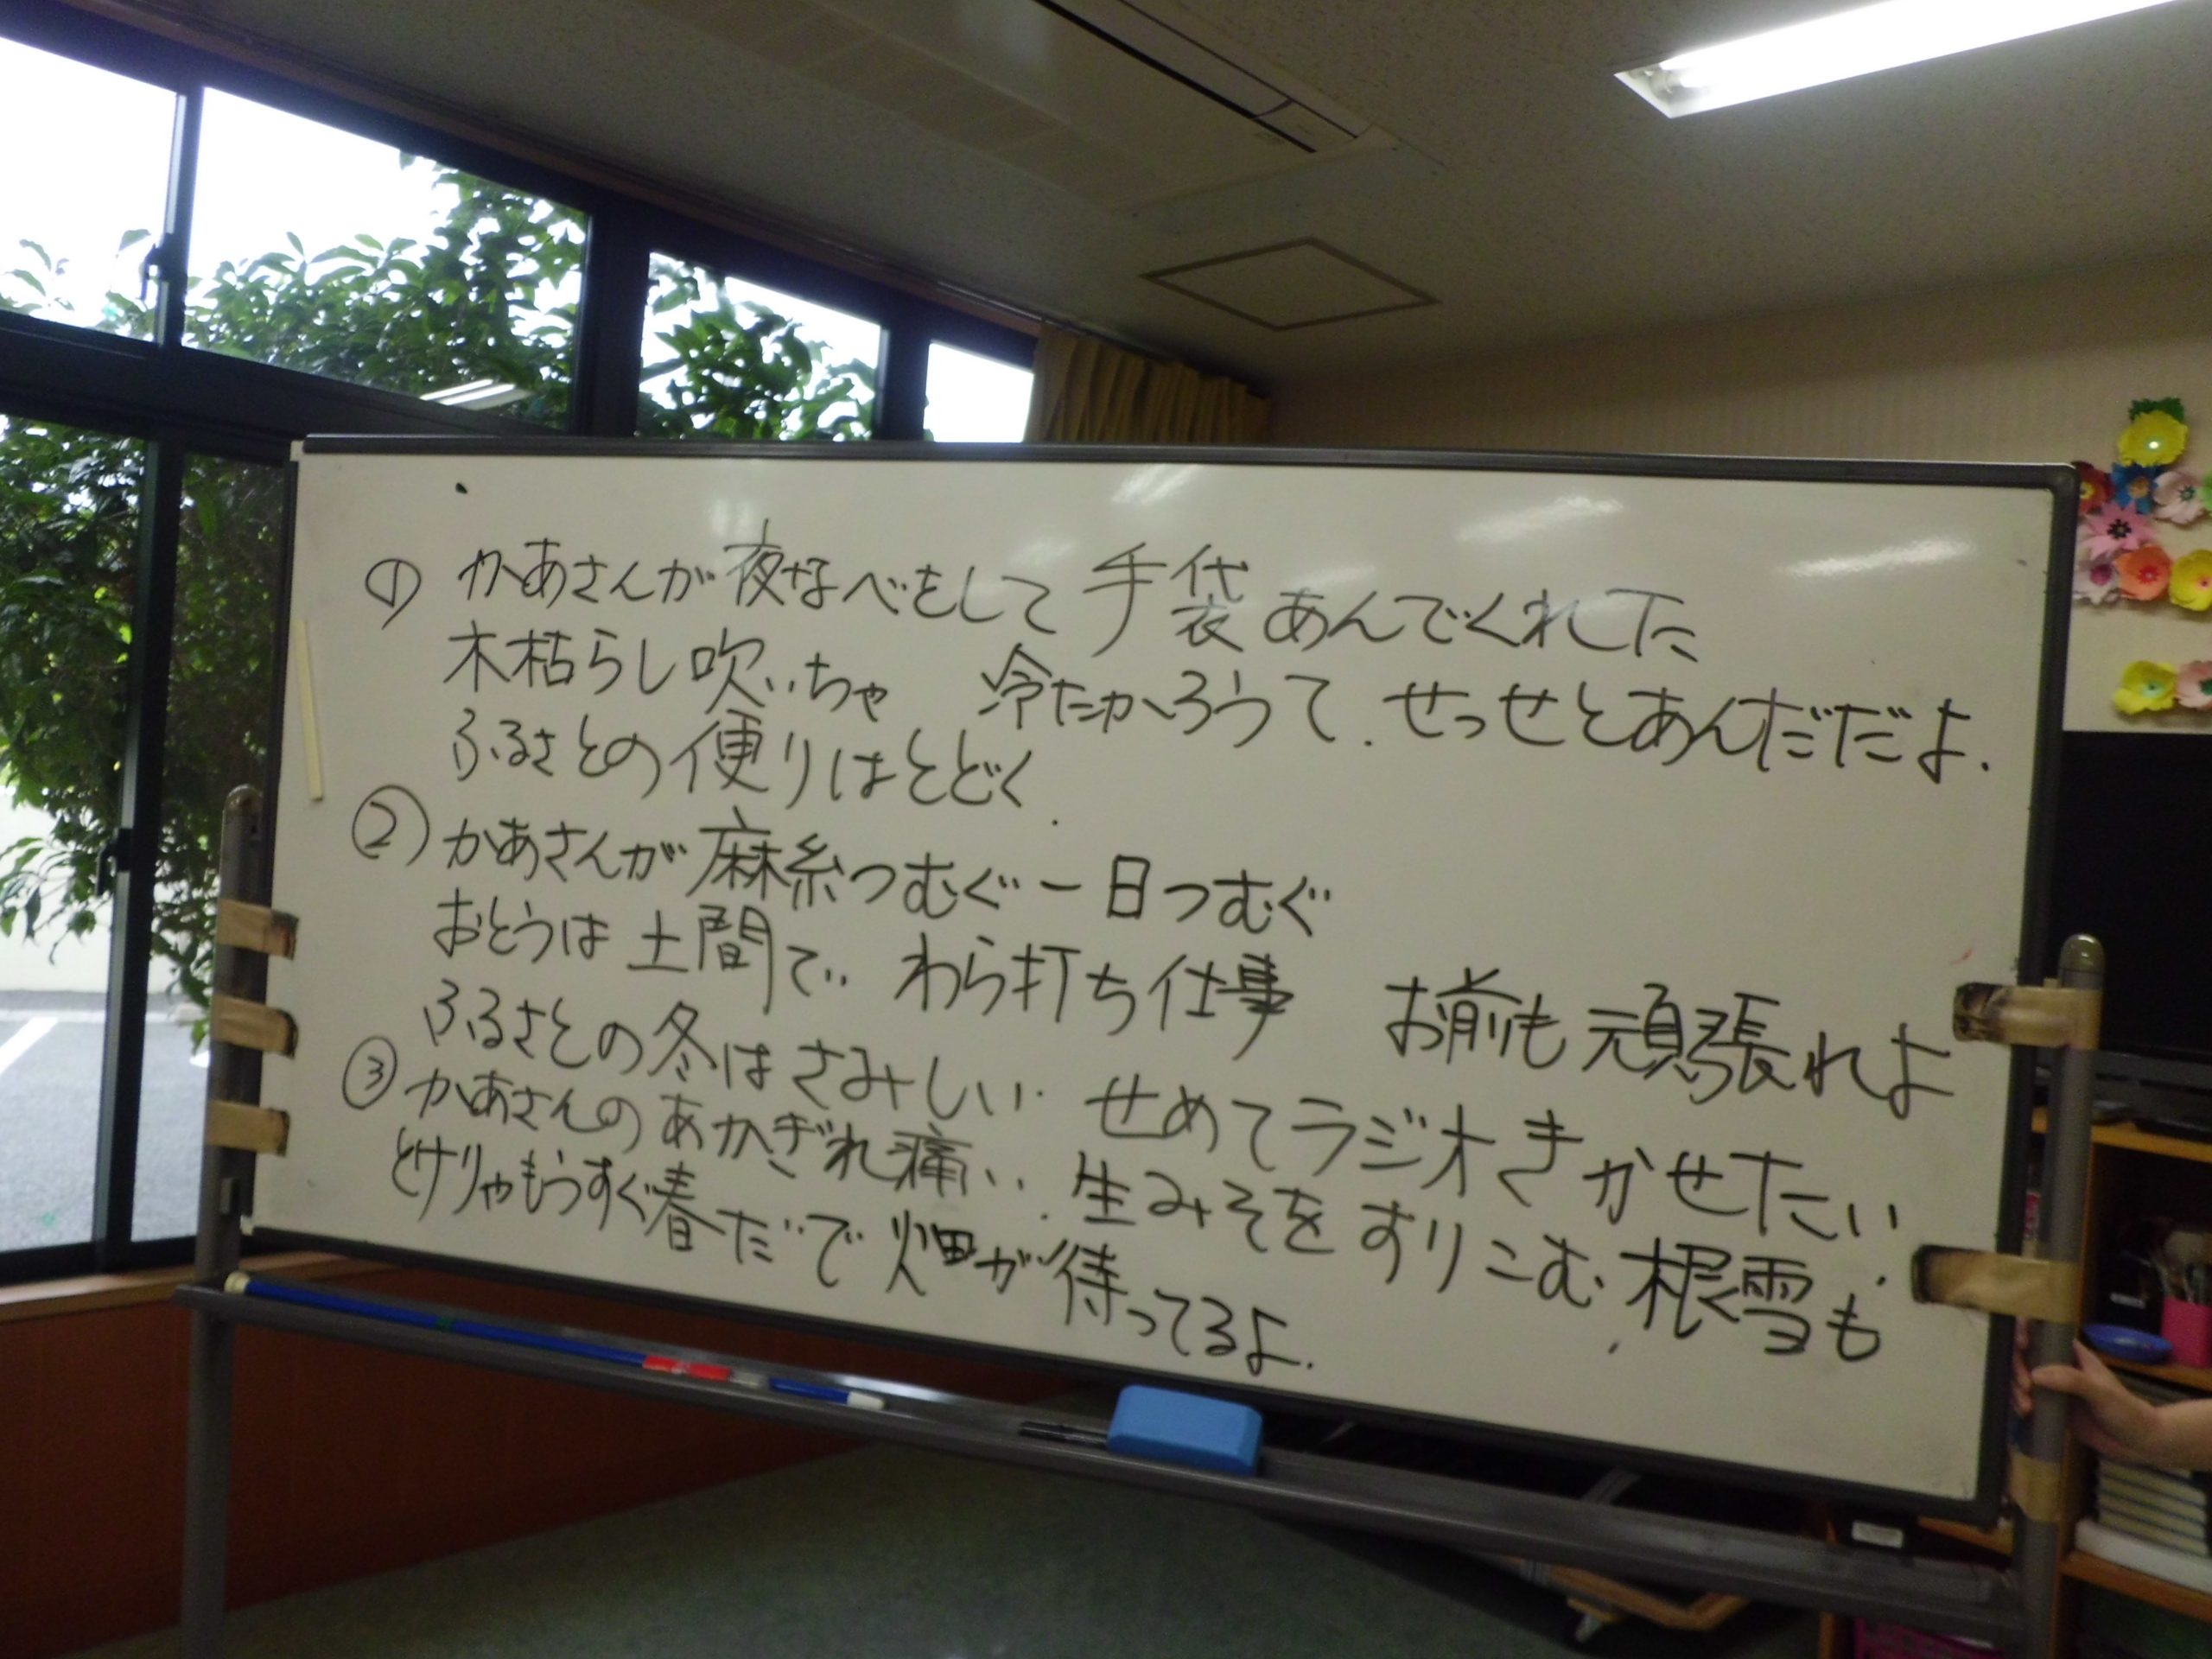 ① かあさんが夜なべをして 手袋あんでくれた
木枯らし吹いちゃ 冷たかろうて. せっせとあんだだよ.
ふるさとの便りはとどく.
② かあさんが麻糸つむぐ 一日つむぐ
おとうは土間で.. わら打ち仕事 お前も頑張れよ
ふるさとの冬はさみしい. せめてラジオきかせたい
③ かあさんのあかぎれ痛い. 生みそをすりこむ. 根雪も
とけりゃもうすぐ春だで 畑が待ってるよ.